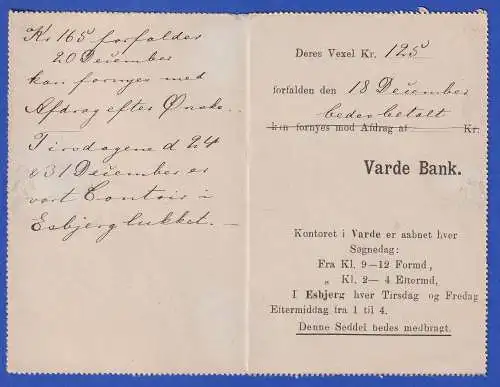 Kr 165 forfalder
20 December
kan fornyes med
Afdrag efter Ønske.
Tirsdagene d 24
& 31 December er
vort Contoir i
Esbjerg lukket.
Deres Vexel Kr. 125
forfalden den 18 December
bedes betalt
kan fornyes mod Afdrag af Kr:
Varde Bank.
Kontoret i Varde er aabnet hver
Søgnedag:
Fra Kl. 9—12 Formd,
„ Kl. 2— 4 Eftermd,
I Esbjerg hver Tirsdag og Fredag
Eftermiddag fra 1 til 4.
Denne Seddel bedes medbragt.